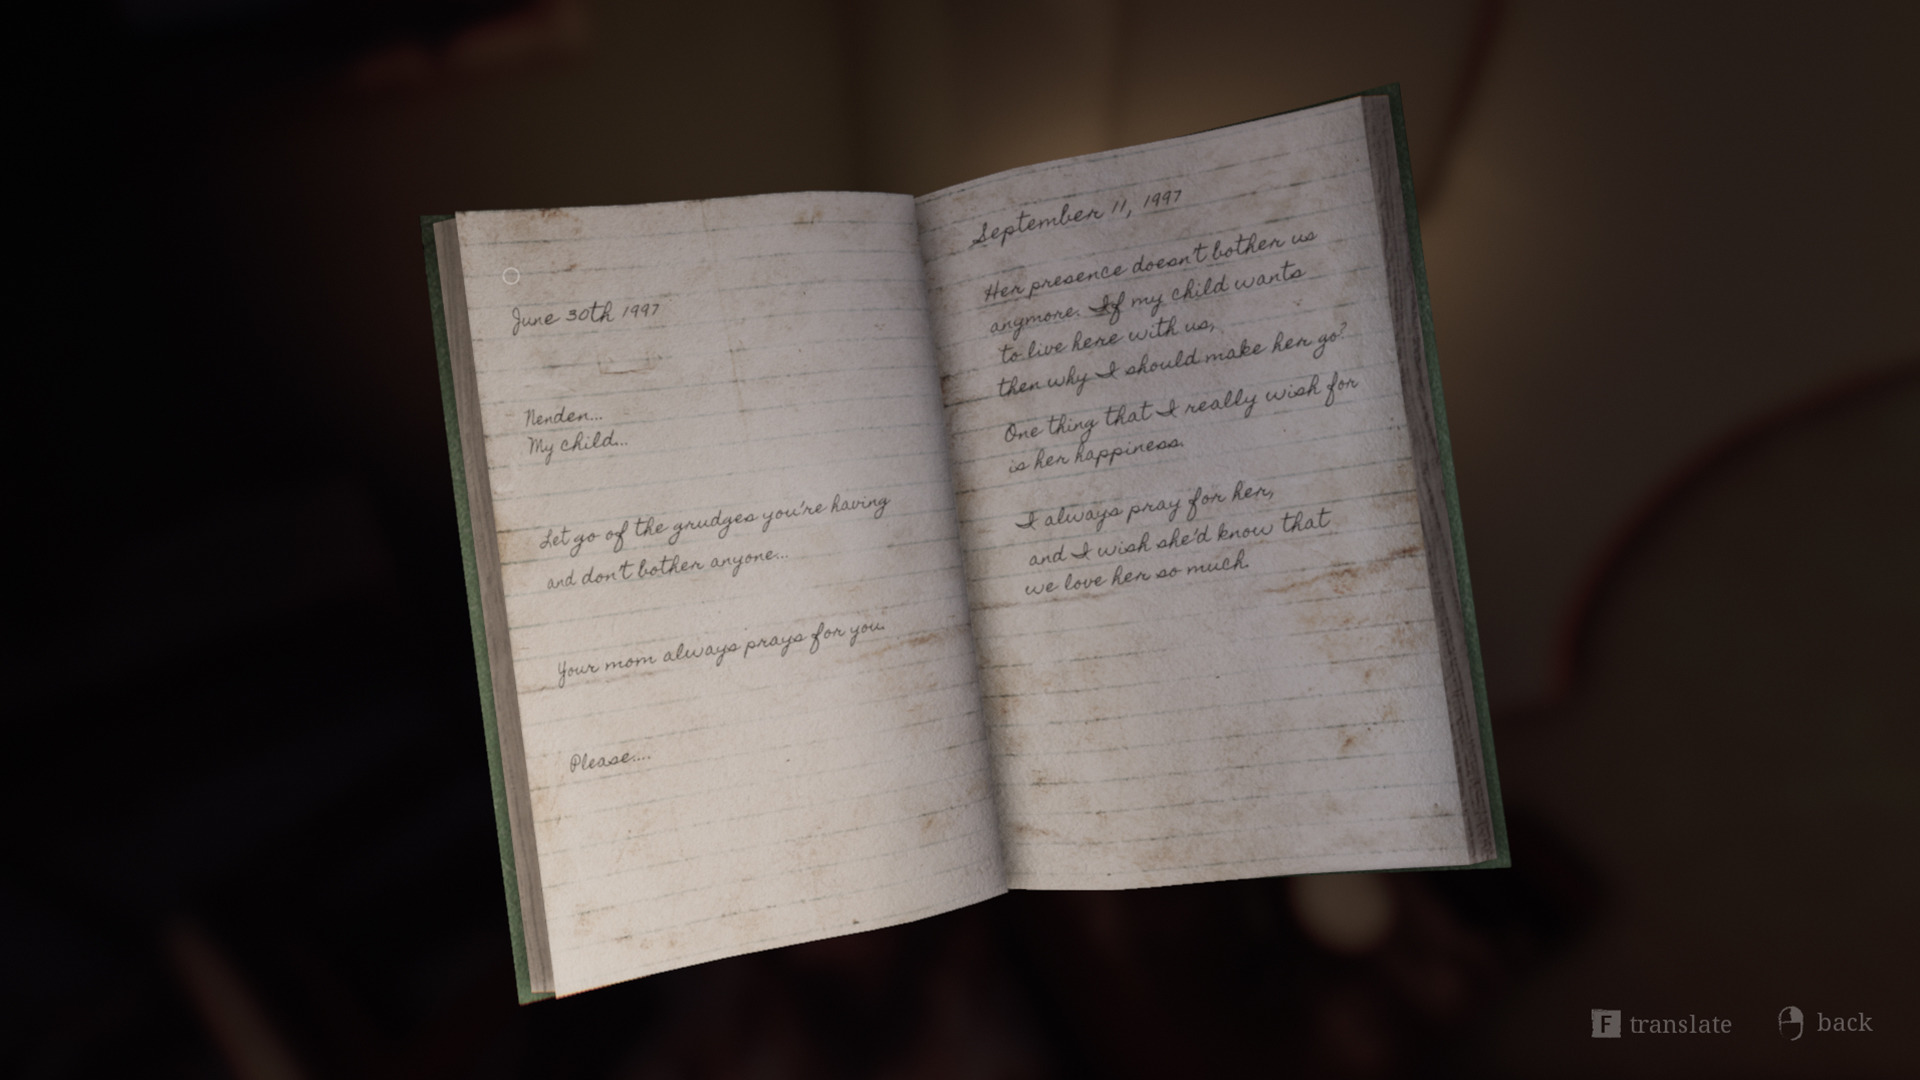 June 30th 1997
Nenden...
My child...
Let go of the grudges you're having
and don't bother anyone...
Your mom always prays for you.
Please....
September 11, 1997
Her presence doesn't bother us
angmore. If my child wants
to live here with us,
then why I should make her go?
One thing that I really wish for
is her happiness.
I always pray for her,
and I wish she'd know that
we love her so much.
F translate
back